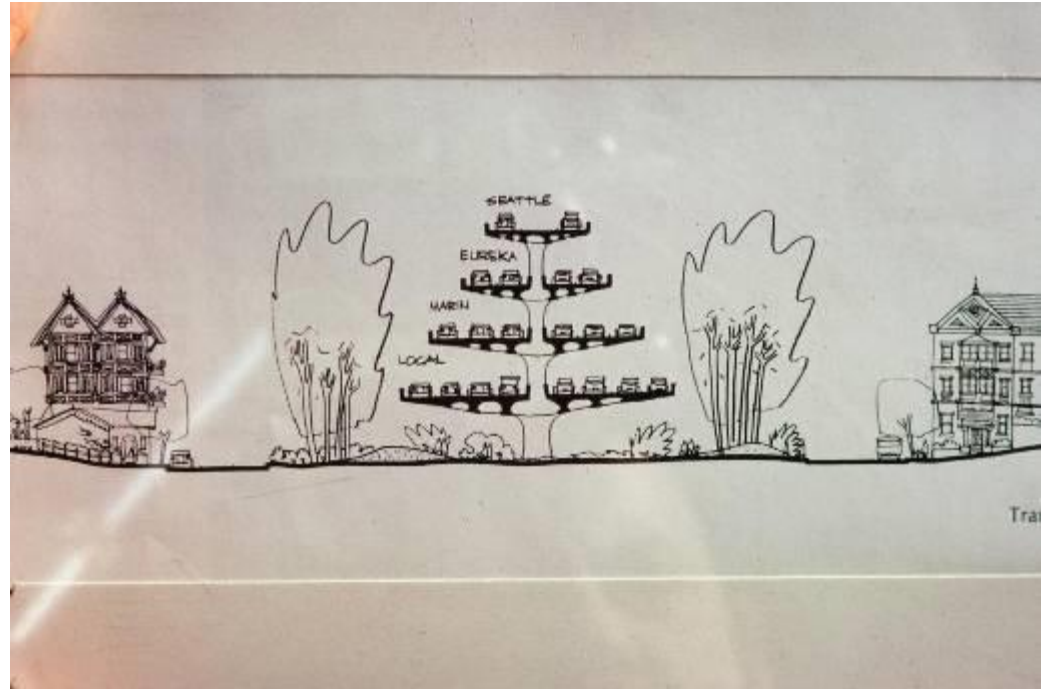 SEATTLE
EUREKA
MARIN
LOCAL
Tra